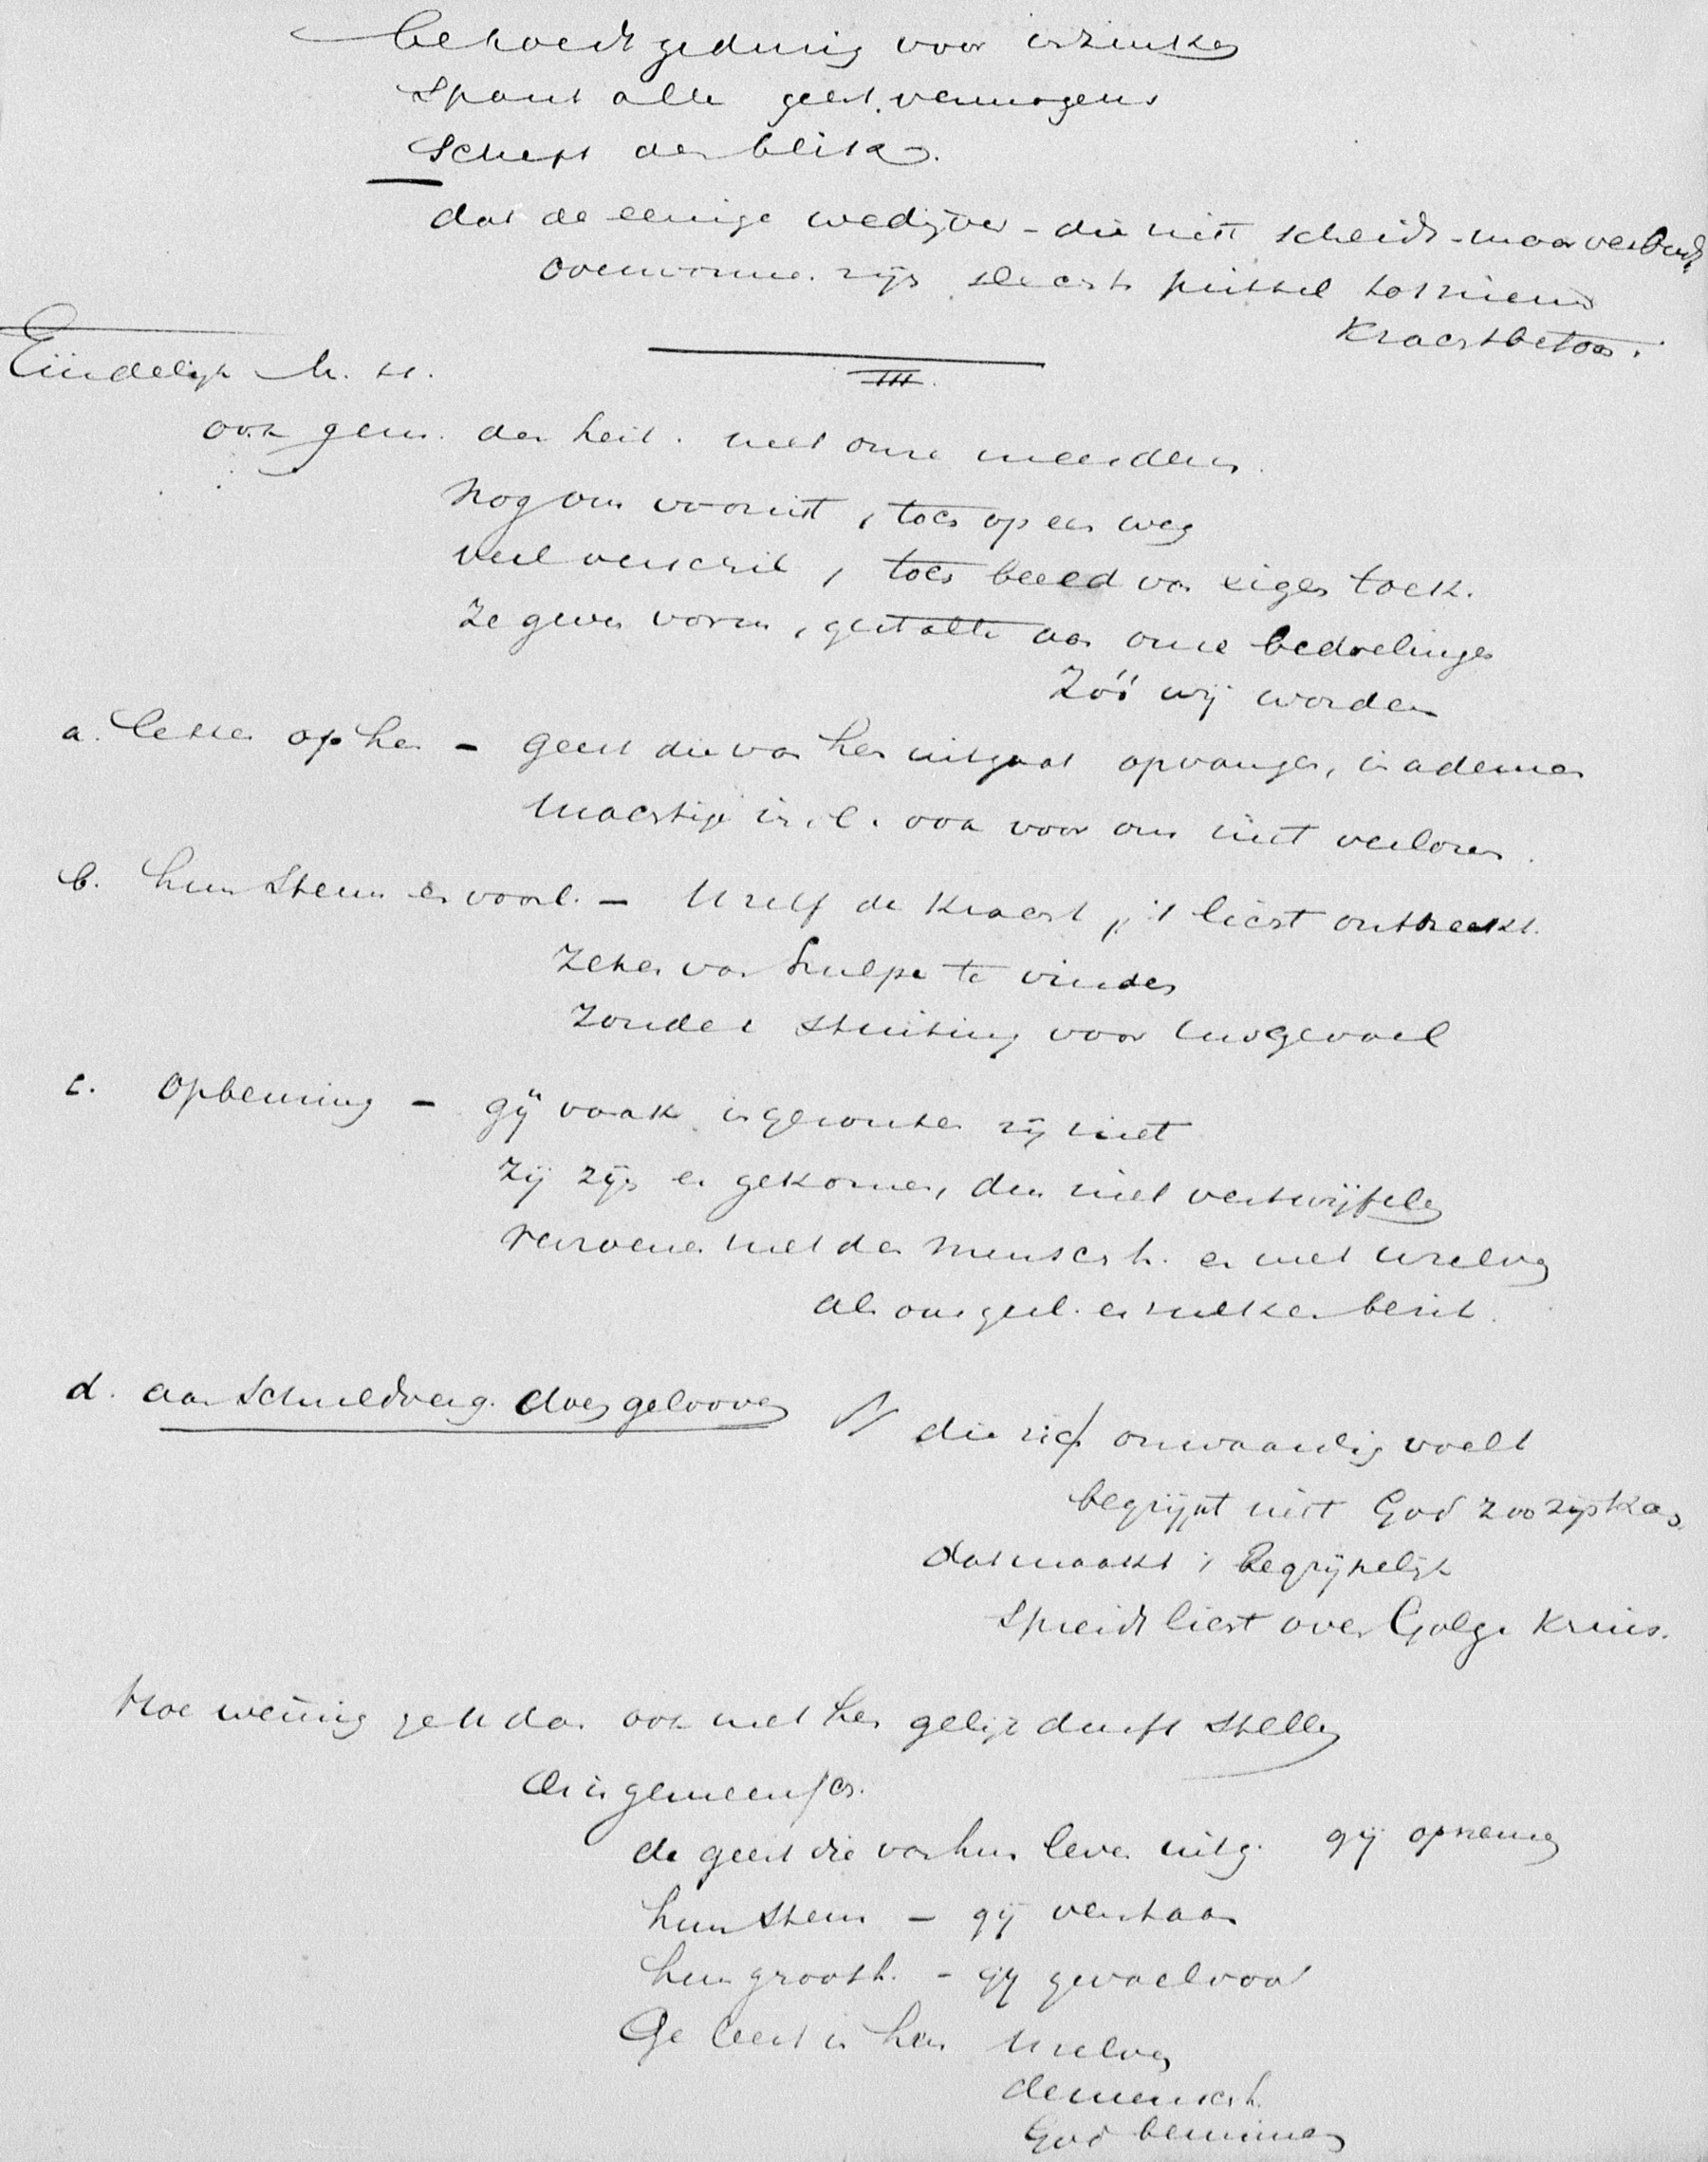 behoedt gedurig voor inzinken
spant alle geest. vermogens
scherpt den blik.
dat de eenige wedijver - die niet scheidt - maar verbindt
overwonne. zijn slechts prikkel tot nieuw
krachtbetoon.
Eindelijk M. H.
III.
ook gem. der heil. met onze meerderen.
Nog ons vooruit, toch op een weg
veel verschil, toch beeld van eigen toek.
Ze geven vorm, gestalte aan onze bedoelingen
Zóó wij worden
a. letten op hen - geest die van hen uitgaat opvangen, inademen
machtige inl. ook voor ons niet verloren.
b. hun stem en voorl. - Uzelf de kracht, 't licht ontbreekt.
Zeker van hulpe te vinden
Zonder stuiting voor Uw gevoel
c. Opbeuring - gij vaak ingezonken zij niet
Zij zijn er gekomen, dus niet vertwijfelen
Verzoenen met de Mensch. en met Uzelven
als ons gesl. er zulken bezit.
d. aan Schuldverg. doen gelooven die zich onwaardig voelt
begrijpt niet God zoo zijn kan
dat maakt 't begrijpelijk
Spreidt licht over Golg. Kruis.
Hoe weinig ge U dan ook met hen gelijk durft stellen
Er is gemeensch.
de geest die van hun leven uitg. gij opnemen
hun stem - gij verstaan
hun grooth. - gij gevoel voor
Ge leert in hen Uzelven
de mensch.
God beminnen